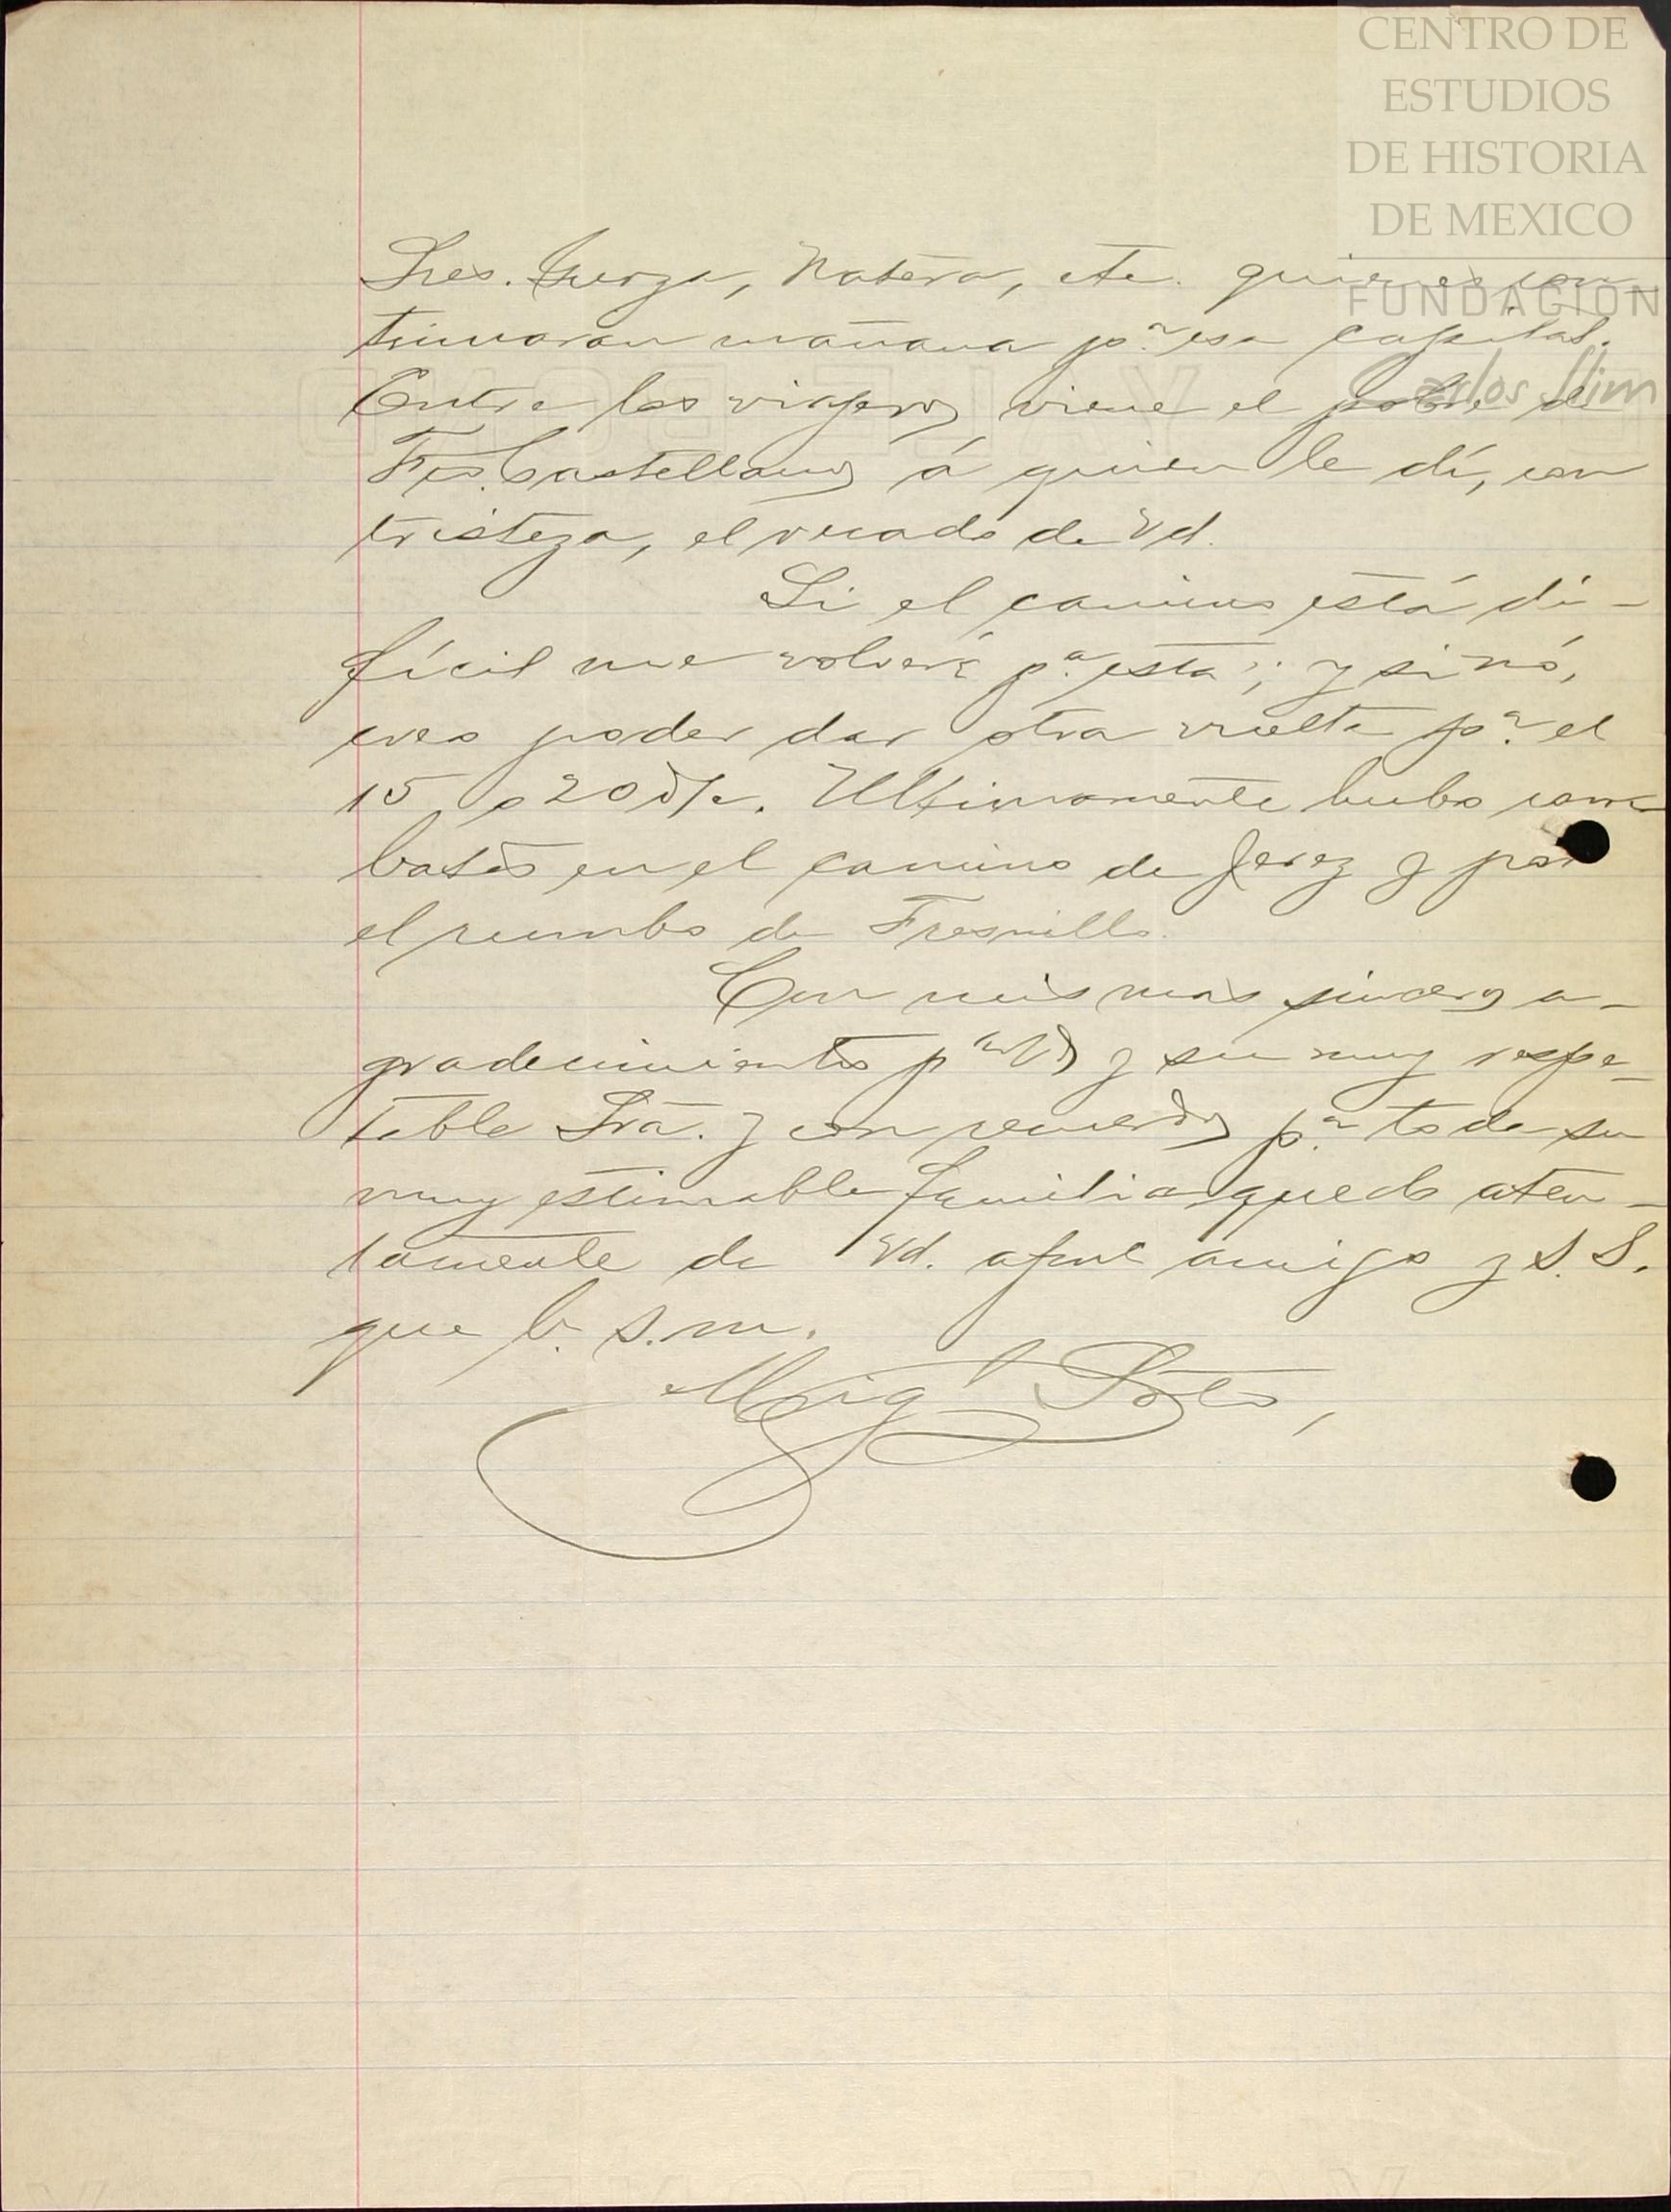 CENTRO DE
ESTUDIOS
DE HISTORIA
DE MEXICO
FUNDACION
Carlos Slim
Sres. Natera, etc. quienes con-
tinuaran mañana pª esa capital.
Entre los viajeros viene el pobre de
Fco. Castellanos á quien le dí, con
tristeza, el recado de Vd.
Si el camino está di-
fícil me volveré pª esta; y si nó,
creo poder dar otra vuelta pª el
15 o 20 Ultimamente hubo com-
bates en el camino de Jerez y por
el rumbo de Fresnillo.
Con mis mas sinceros a-
gradecimientos pª Vd y su muy respe-
table Srá. y con recuerdos pª toda su
muy estimable familia quedo aten-
tamente de Vd. afmo amigo y S. S.
que b. s. m.
Migl Soto,
YALE BOND
YALE BOND